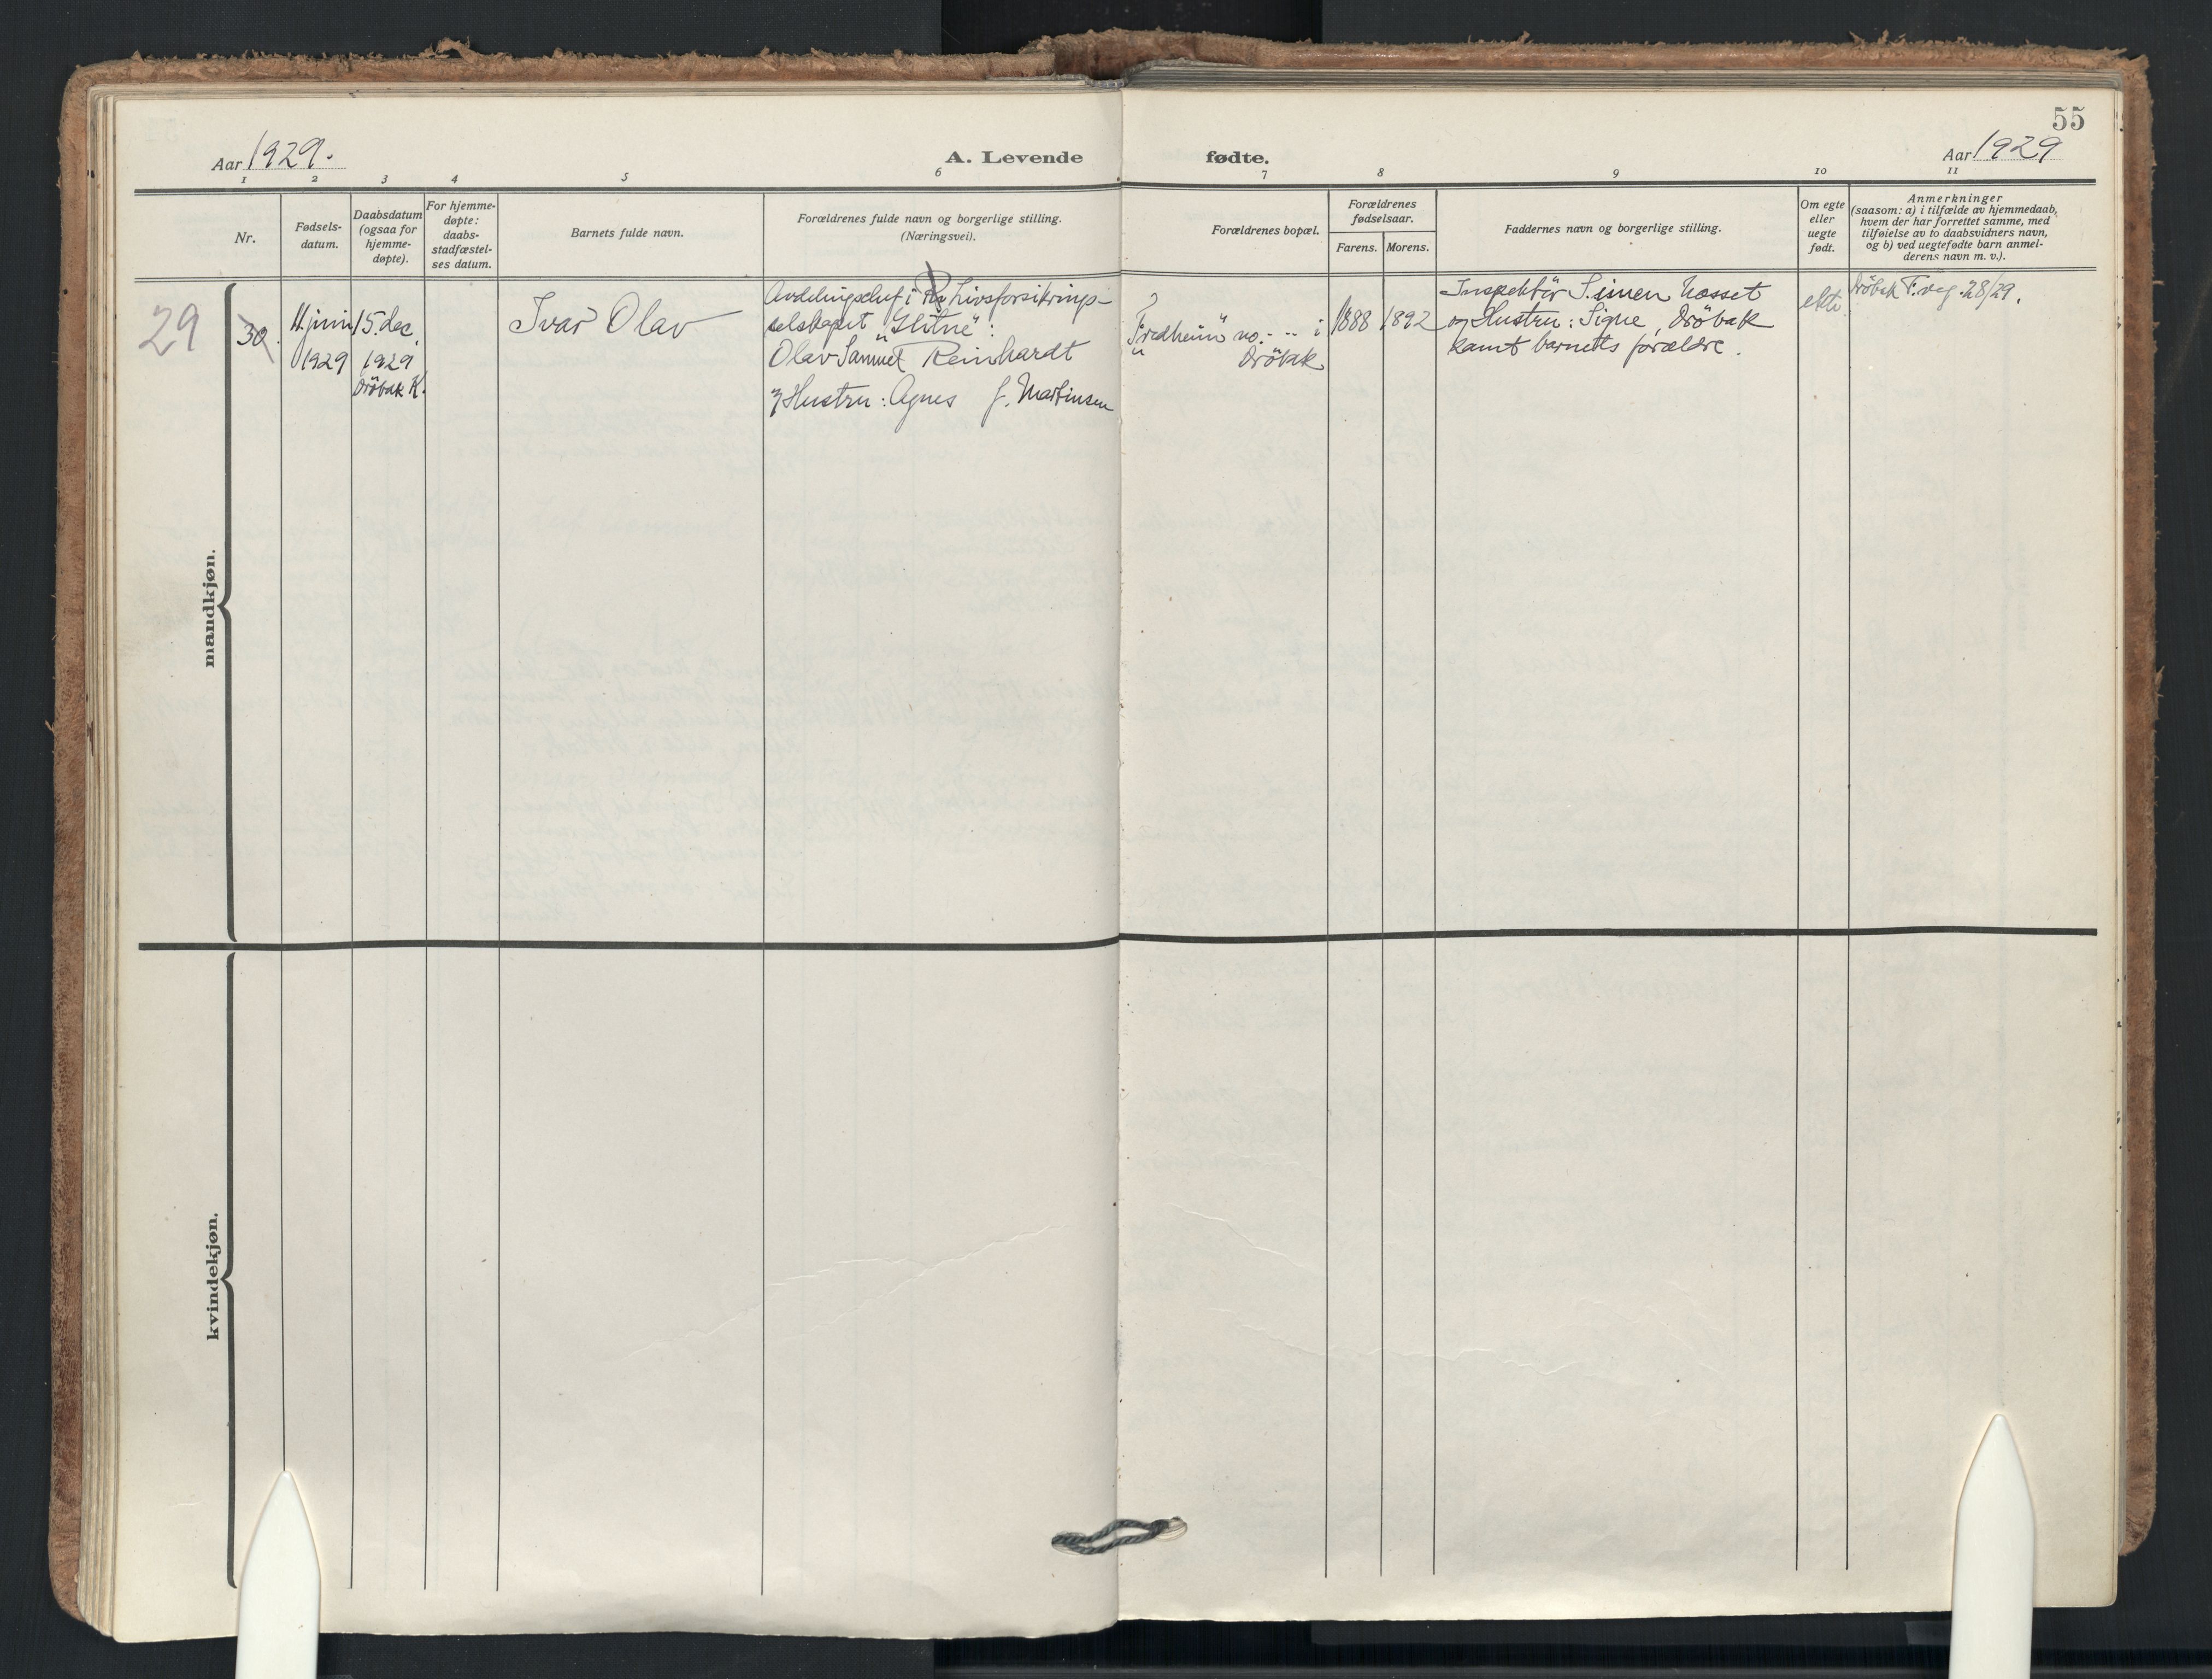 55
Aar 1929.
A. Levende
fødte.
Aar 1929
1
2
3
4
5
6
7
8
9
10
11
Nr.
Fødsels-
datum.
Daabsdatum
(ogsaa for
hjemme-
døpte).
For hjemme-
døpte:
daabs-
stadfæstel-
ses datum.
Barnets fulde navn.
Forældrenes fulde navn og borgerlige stilling.
(Næringsvei).
Forældrenes bopæl.
Forældrenes
fødselsaar.
Farens.
Morens.
Faddernes navn og borgerlige stilling.
Om egte
eller
uegte
født.
Anmerkninger
(saasom: a) i tilfælde av hjemmedaab,
hvem der har forrettet samme, med
tilføielse av to daabsvidners navn,
og b) ved uegtefødte barn anmel-
derens navn m. v.).
mandkjøn.
29
30.
11. juni
1929
15. dec.
1929
Dröbak K.
Ivar Olav
Avdelingschef i Livsforsikrings-
selskapet "Glitne":
Olav Samuel Reinhardt
og Hustru: Agnes f. Martinsen
?
"Fredheim" no. - - i
Dröbak
1888
1892
Inspektör Simen Mosset
og Hustru: Signe, Dröbak
samt barnets forældre.
ekte
Dröbak F. reg. 28/29.
kvindekjøn.